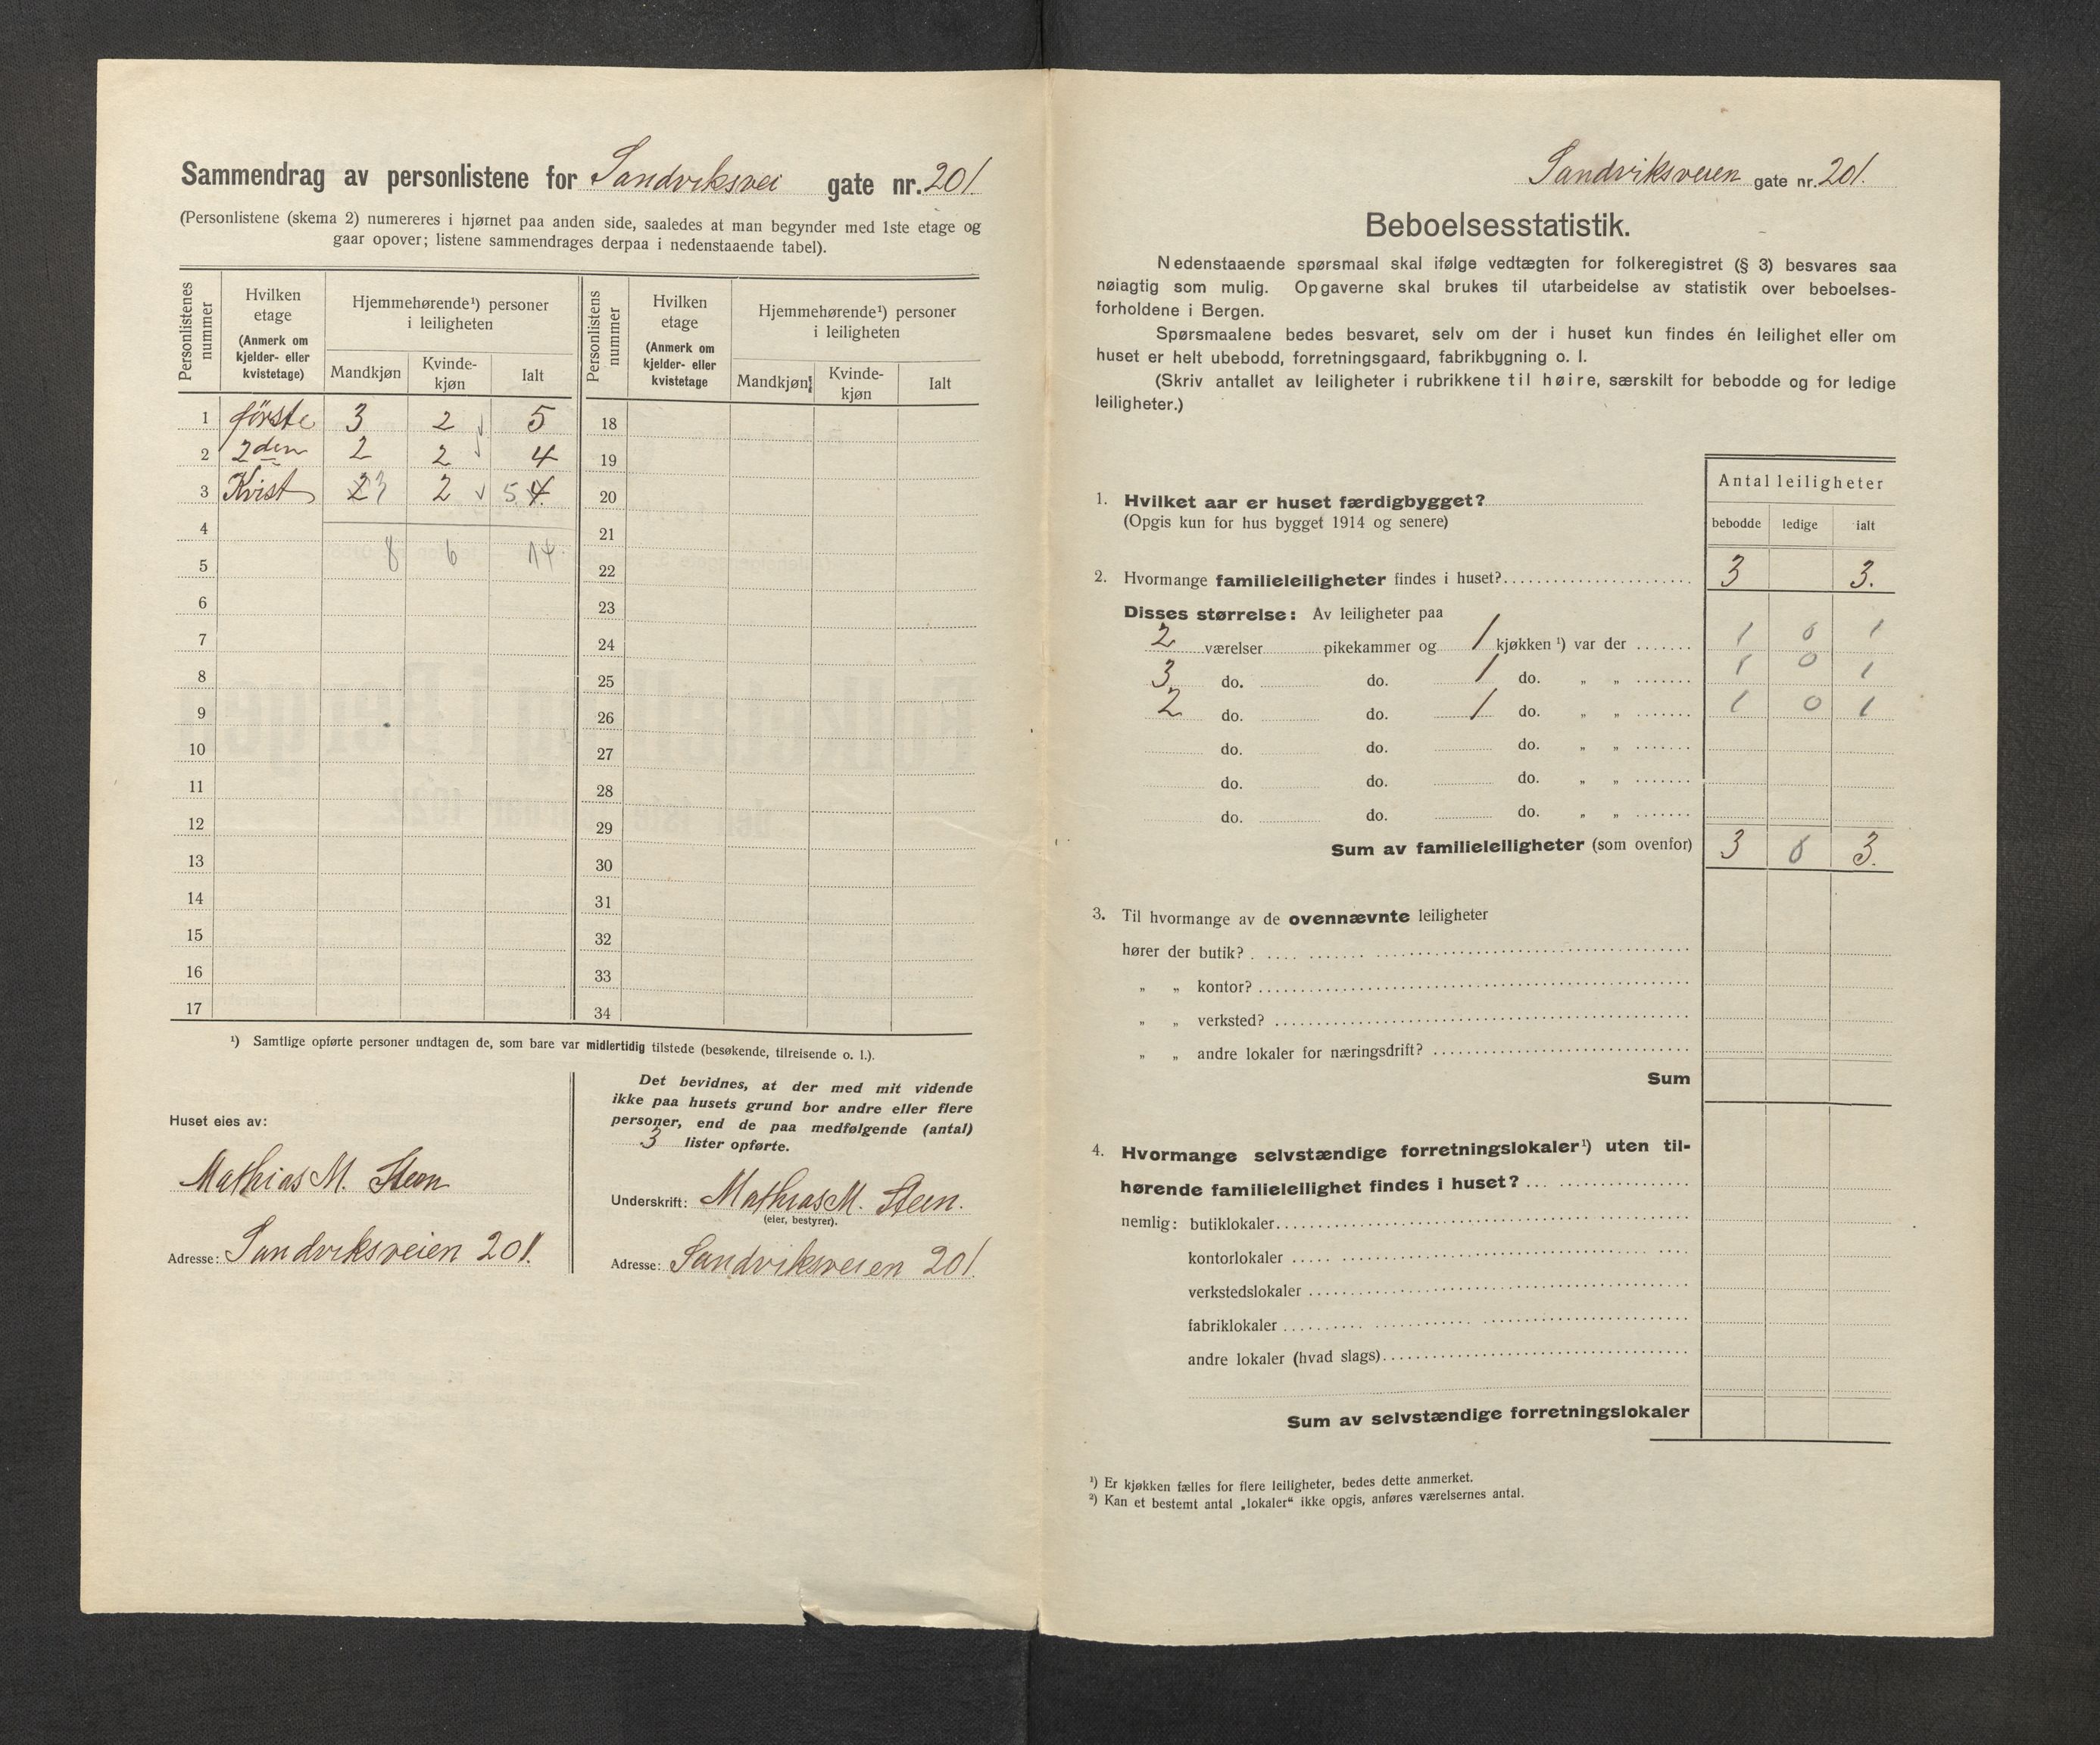 Sammendrag av personlistene for Sandviksvei gate nr. 201
(Personlistene (skema 2) numereres i hjørnet paa anden side, saaledes at man begynder med 1ste etage og
gaar opover; listene sammendrages derpaa i nedenstaaende tabel).
Personlistenes nummer
Hvilken etage
(Anmerk om kjelder- eller kvistetage)
Hjemmehørende¹) personer i leiligheten
Mandkjøn
Kvinde-kjøn
Ialt
Personlistens nummer
Hvilken etage
(Anmerk om kjelder- eller kvistetage
Hjemmehørende¹) personer i leiligheten
Mandkjøn
Kvinde-kjøn
Ialt
1 første 3 2 5 18
2 2den 2 2 4 19
3 Kvist 2 3 2 5 4 20
4 21
5 8 6 14 22
6 23
7 24
8 25
9 26
10 27
11 28
12 29
13 30
14 31
15 32
16 33
17 34
¹) Samtlige opførte personer undtagen de, som bare var midlertidig tilstede (besøkende, tilreisende o. l.).
Huset eies av:
Mathias M. Steen
Adresse: Sandviksveien 201.
Det bevidnes, at der med mit vidende
ikke paa husets grund bor andre eller flere
personer, end de paa medfølgende (antal)
3 lister opførte.
Underskrift: Mathias M. Steen.
(eier, bestyrer).
Adresse: Sandviksveien 201.
Sandviksveien gate nr. 201.
Beboelsesstatistik.
Nedenstaaende spørsmaal skal ifølge vedtægten for folkeregistret (§ 3) besvares saa
nøiagtig som mulig. Opgaverne skal brukes til utarbeidelse av statistik over beboelses-
forholdene i Bergen.
Spørsmaalene bedes besvaret, selv om der i huset kun findes én leilighet eller om
huset er helt ubebodd, forretningsgaard, fabrikbygning o. l.
(Skriv antallet av leiligheter i rubrikkene til høire, særskilt for bebodde og for ledige
leiligheter.)
Antal leiligheter
bebodde ledige ialt
1. Hvilket aar er huset færdigbygget?
(Opgis kun for hus bygget 1914 og senere)
2. Hvormange familieleiligheter findes i huset? 3 3.
Disses størrelse: Av leiligheter paa
2 værelser pikekammer og 1 kjøkken ¹) var der 1 0 1
3 do. do. 1 do. „ „ 1 0 1
2 do. do. 1 do. „ „ 1 0 1
do. do. do. „ „
do. do. do. „ „
do. do. do. „ „
Sum av familieleiligheter (som ovenfor) 3 0 3.
3. Til hvormange av de ovennævnte leiligheter
hører der butik?
„ „ kontor?
„ „ verksted?
„ „ andre lokaler for næringsdrift?
Sum
4. Hvormange selvstændige forretningslokaler¹) uten til-
hørende familieleilighet findes i huset?
nemlig: butiklokaler
kontorlokaler
verkstedslokaler
fabriklokaler
andre lokaler (hvad slags)
Sum av selvstændige forretningslokaler
¹) Er kjøkken fælles for flere leiligheter, bedes dette anmerket.
²) Kan et bestemt antal „lokaler“ ikke opgis, anføres værelsernes antal.